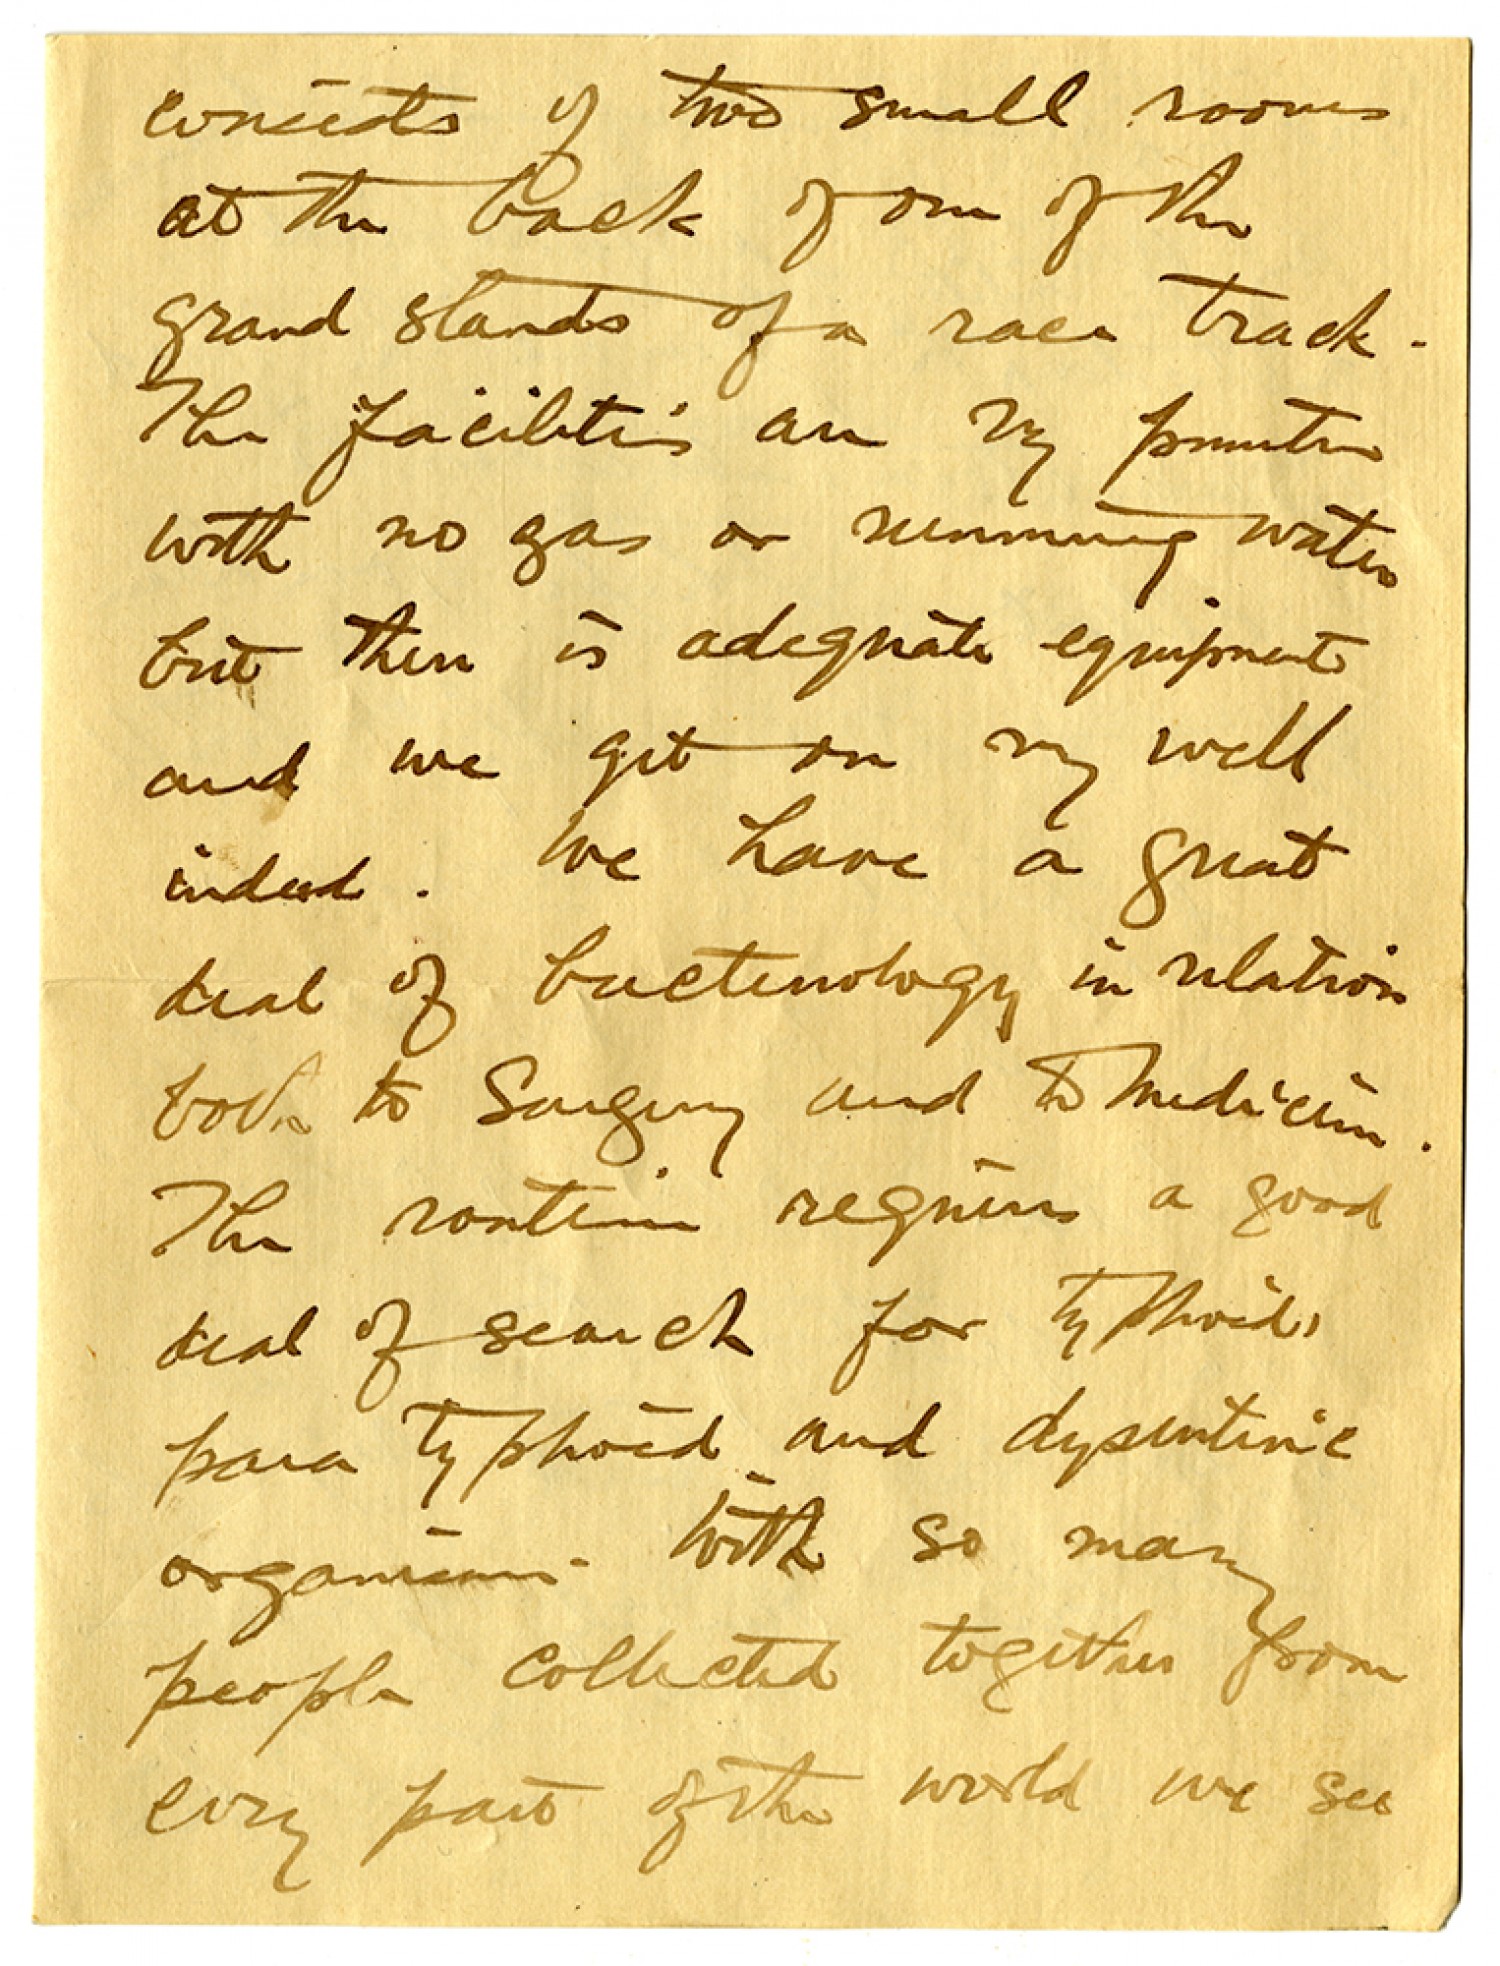 consists of two small rooms
at the back of one of the
grand stands of a race track.
The facilities are very primitive
with no gas or running water
but there is adequate equipment
and we get on very well
indeed. We have a great
deal of bacteriology in relation
both to Surgery and to Medicine.
The routine requires a good
deal of search for typhoid,
para typhoid and dysenteric
organisms. With so many
people collected together from
every part of the world we see